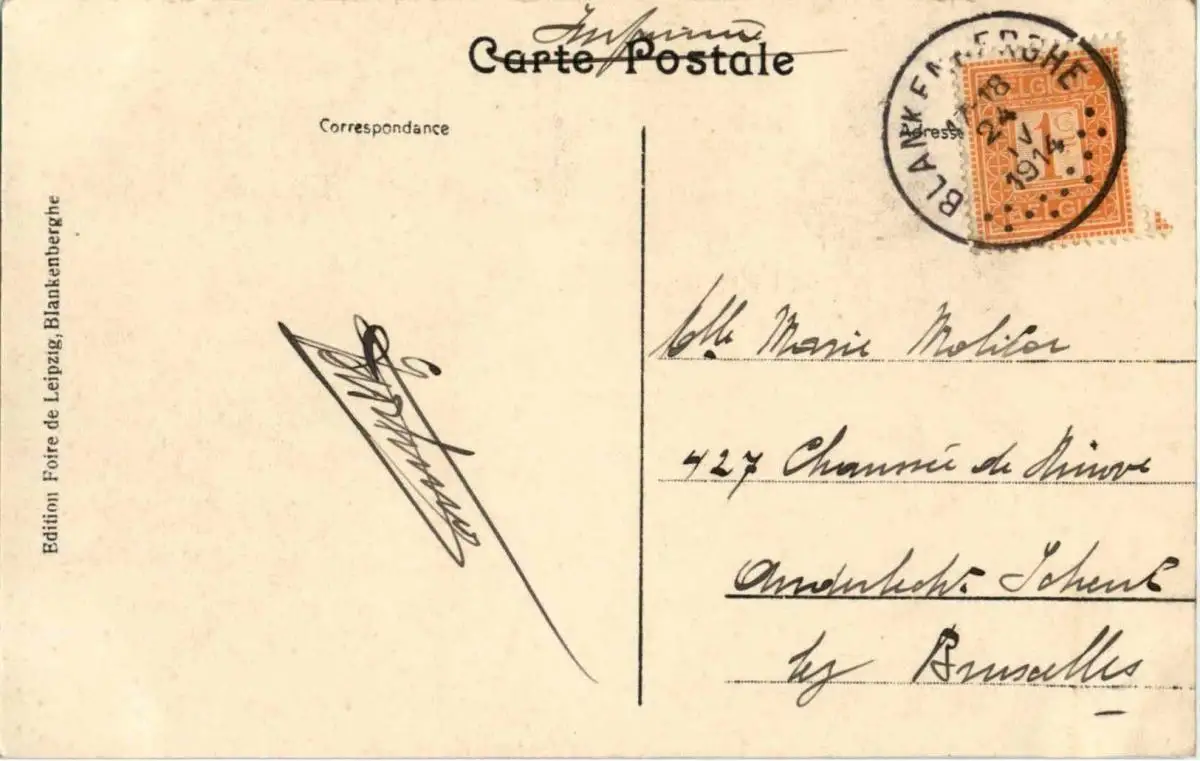 Imprimé
Carte Postale
Correspondance
Adresse
BLANKENBERGHE
17-18
24
IV
1914
BELGIQUE
1c
BELGIË
Mlle Marie Molitor
427 Chaussée de Ninove
Anderlecht Scheut
lez Bruxelles
Edition Foire de Leipzig, Blankenberghe